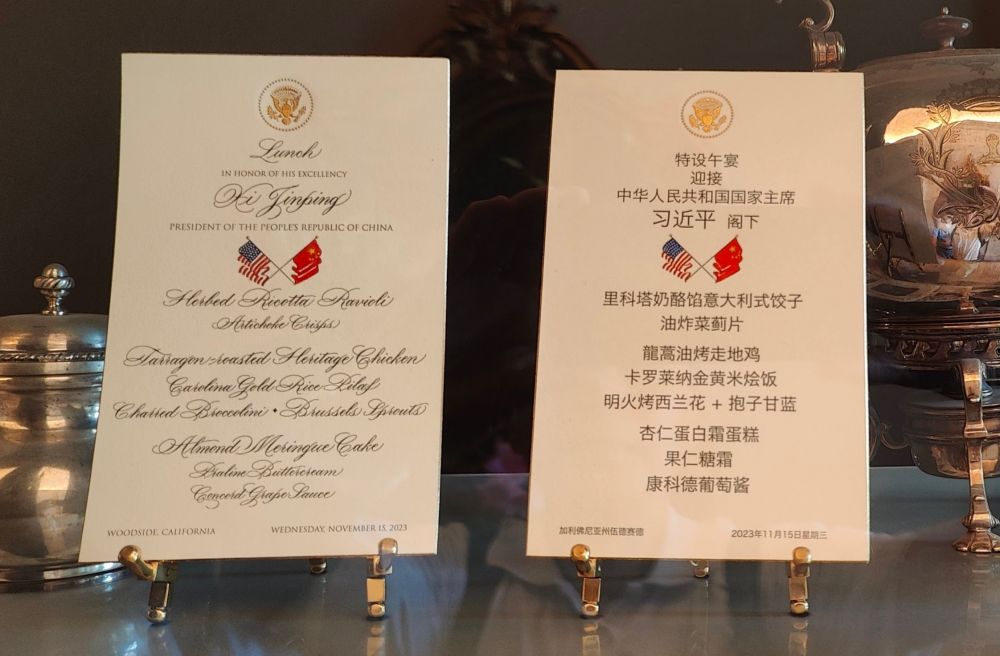 Lunch
IN HONOR OF HIS EXCELLENCY
Xi Jinping
PRESIDENT OF THE PEOPLE'S REPUBLIC OF CHINA
Herbed Ricotta Ravioli
Artichoke Crisps
Tarragon-roasted Heritage Chicken
Carolina Gold Rice Pilaf
Charred Broccolini • Brussels Sprouts
Almond Meringue Cake
Praline Buttercream
Concord Grape Sauce
WOODSIDE, CALIFORNIA
WEDNESDAY, NOVEMBER 15, 2023
特设午宴
迎接
中华人民共和国国家主席
习近平 阁下
里科塔奶酪馅意大利式饺子
油炸菜蓟片
龍蒿油烤走地鸡
卡罗莱纳金黄米烩饭
明火烤西兰花 + 抱子甘蓝
杏仁蛋白霜蛋糕
果仁糖霜
康科德葡萄酱
加利佛尼亚州伍德赛德
2023年11月15日星期三